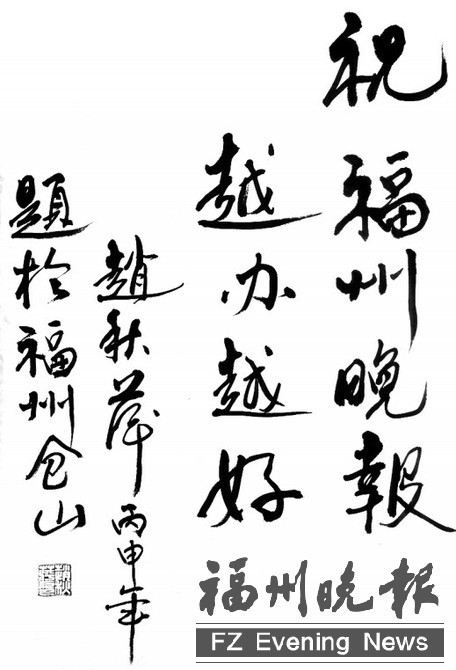 祝福州晚報
越办越好
趙秋萍丙申年
題於福州仓山
福州晚报
FZ Evening News